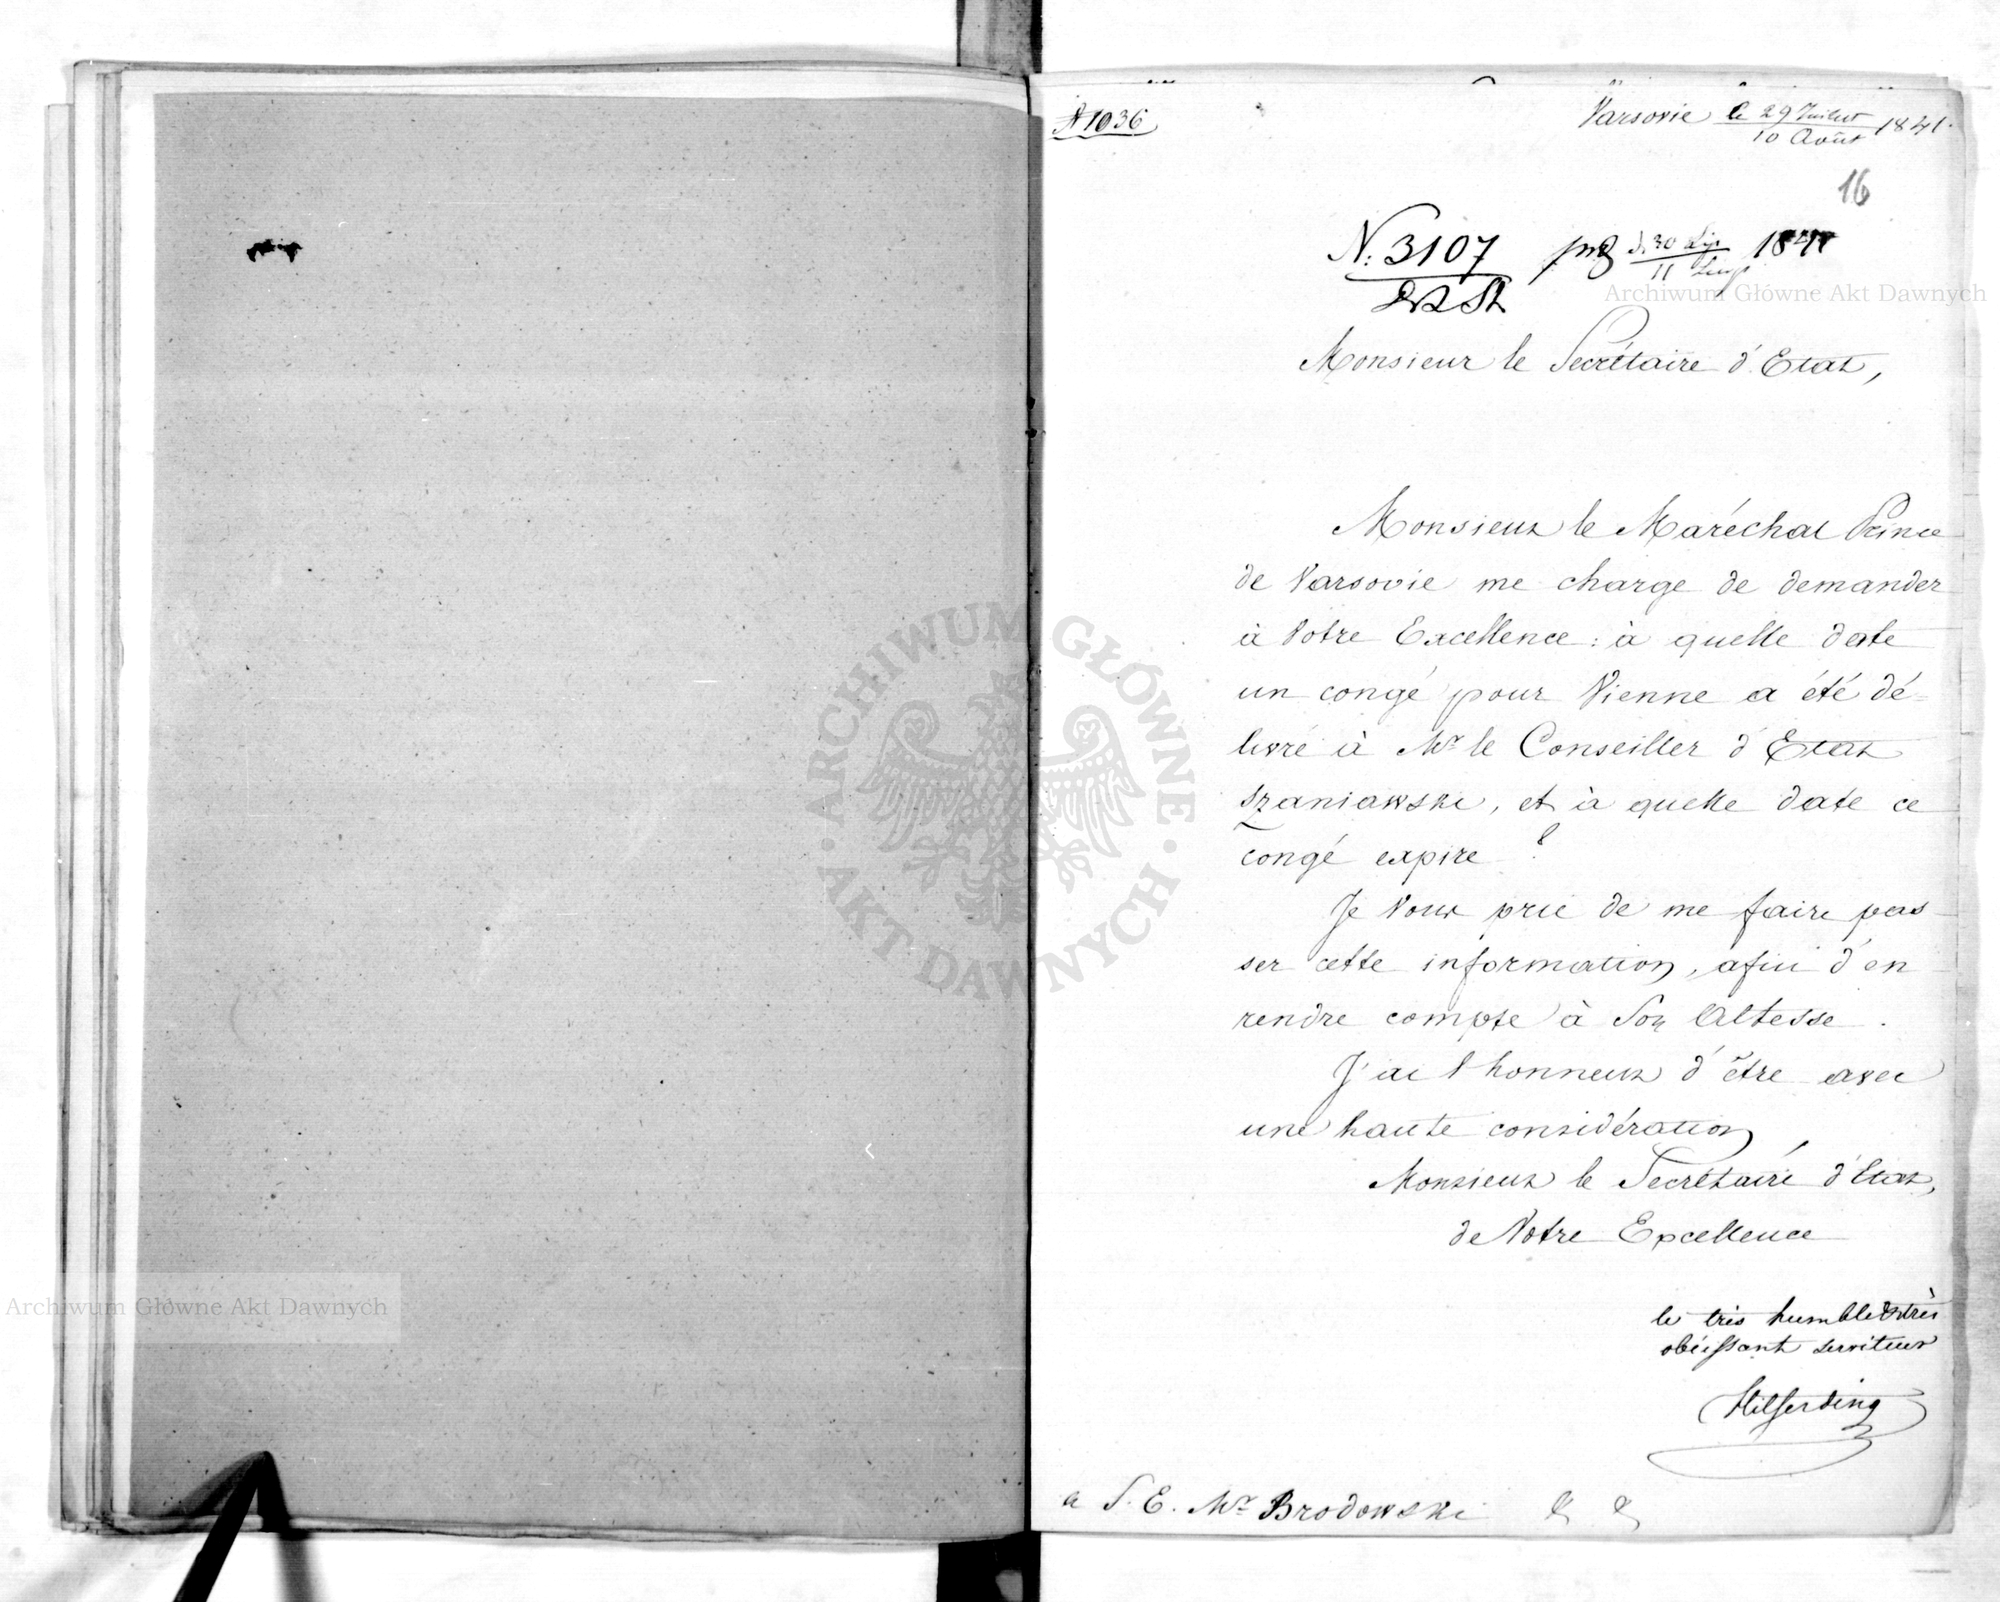 № 1036
Varsovie le 29 Juillet / 10 Août 1841.
16
N: 3107 prz d. 30 Lip / 11 Sierp 1841
Archiwum Główne Akt Dawnych
Monsieur le Secrétaire d'Etat,
Monsieur le Maréchal Prince
de Varsovie me charge de demander
à Votre Excellence: à quelle date
un congé pour Vienne a été dé-
livré à Mr le Conseiller d'Etat
Szaniawski, et à quelle date ce
congé expire?
Je Vous prie de me faire pas
ser cette information, afin d'en
rendre compte à Son Altesse.
J'ai l'honneur d'être avec
une haute considération,
Monsieur le Secrétaire d'Etat,
de Votre Excellence
le très humble & très
obéissant serviteur
Hilferding
a S. E. Mr Brodowski
ARCHIWUM GŁÓWNE · AKT DAWNYCH ·
Archiwum Główne Akt Dawnych